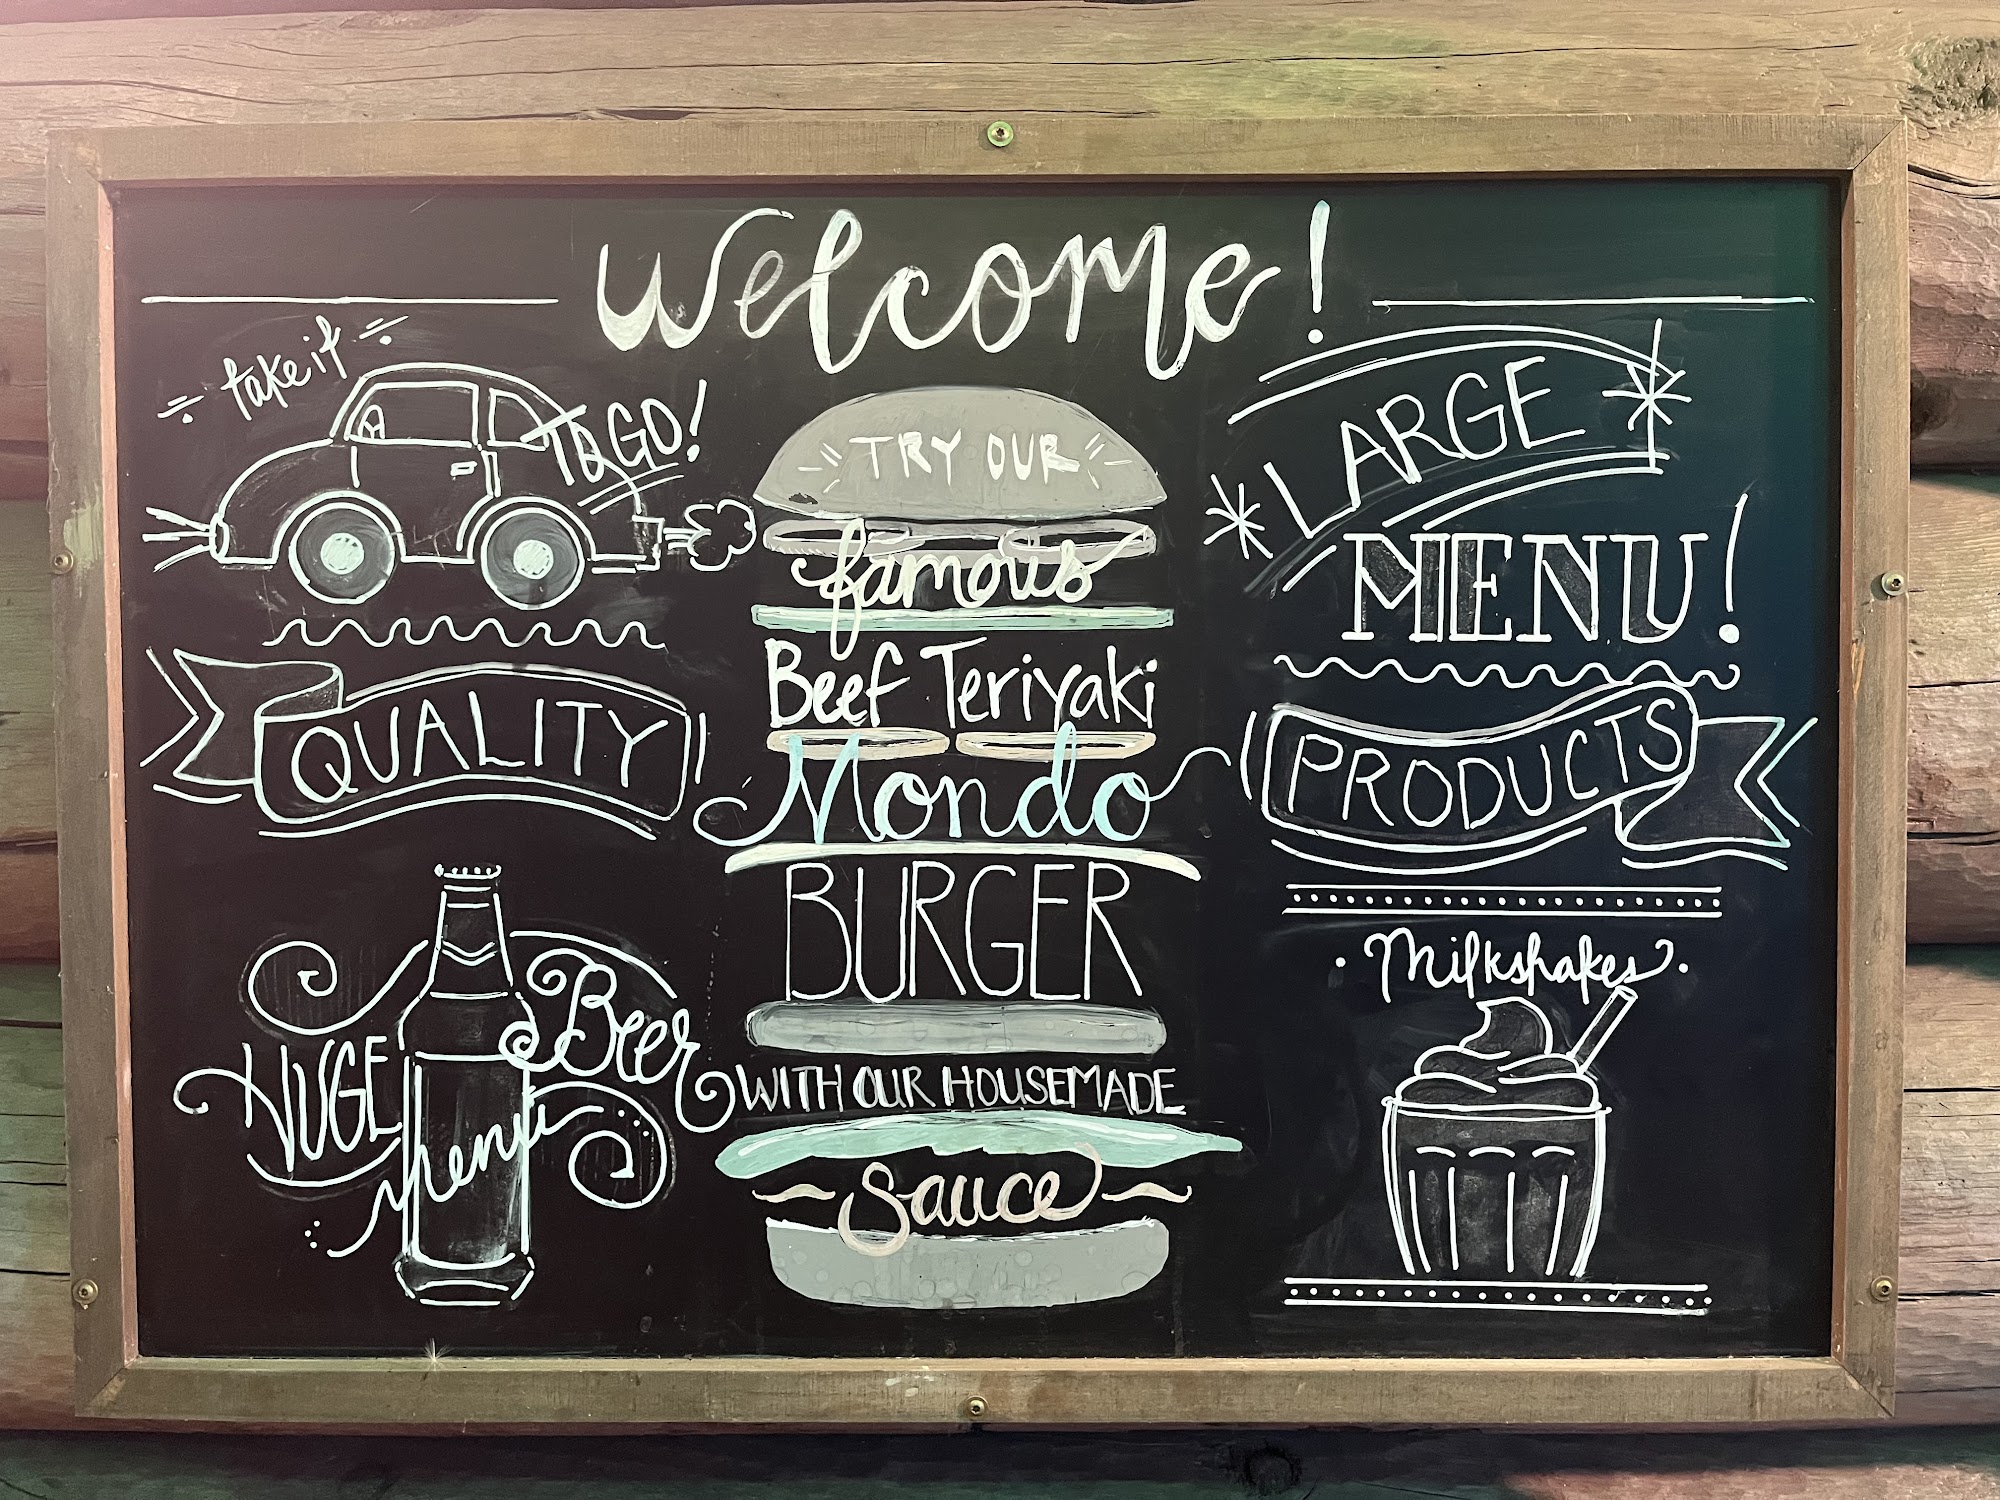 Welcome!
take it
TO GO!
QUALITY
HUGE
Beer
menu
TRY OUR
famous
Beef Teriyaki
Mondo
BURGER
WITH OUR HOUSEMADE
sauce
LARGE
MENU!
PRODUCTS
Milkshakes